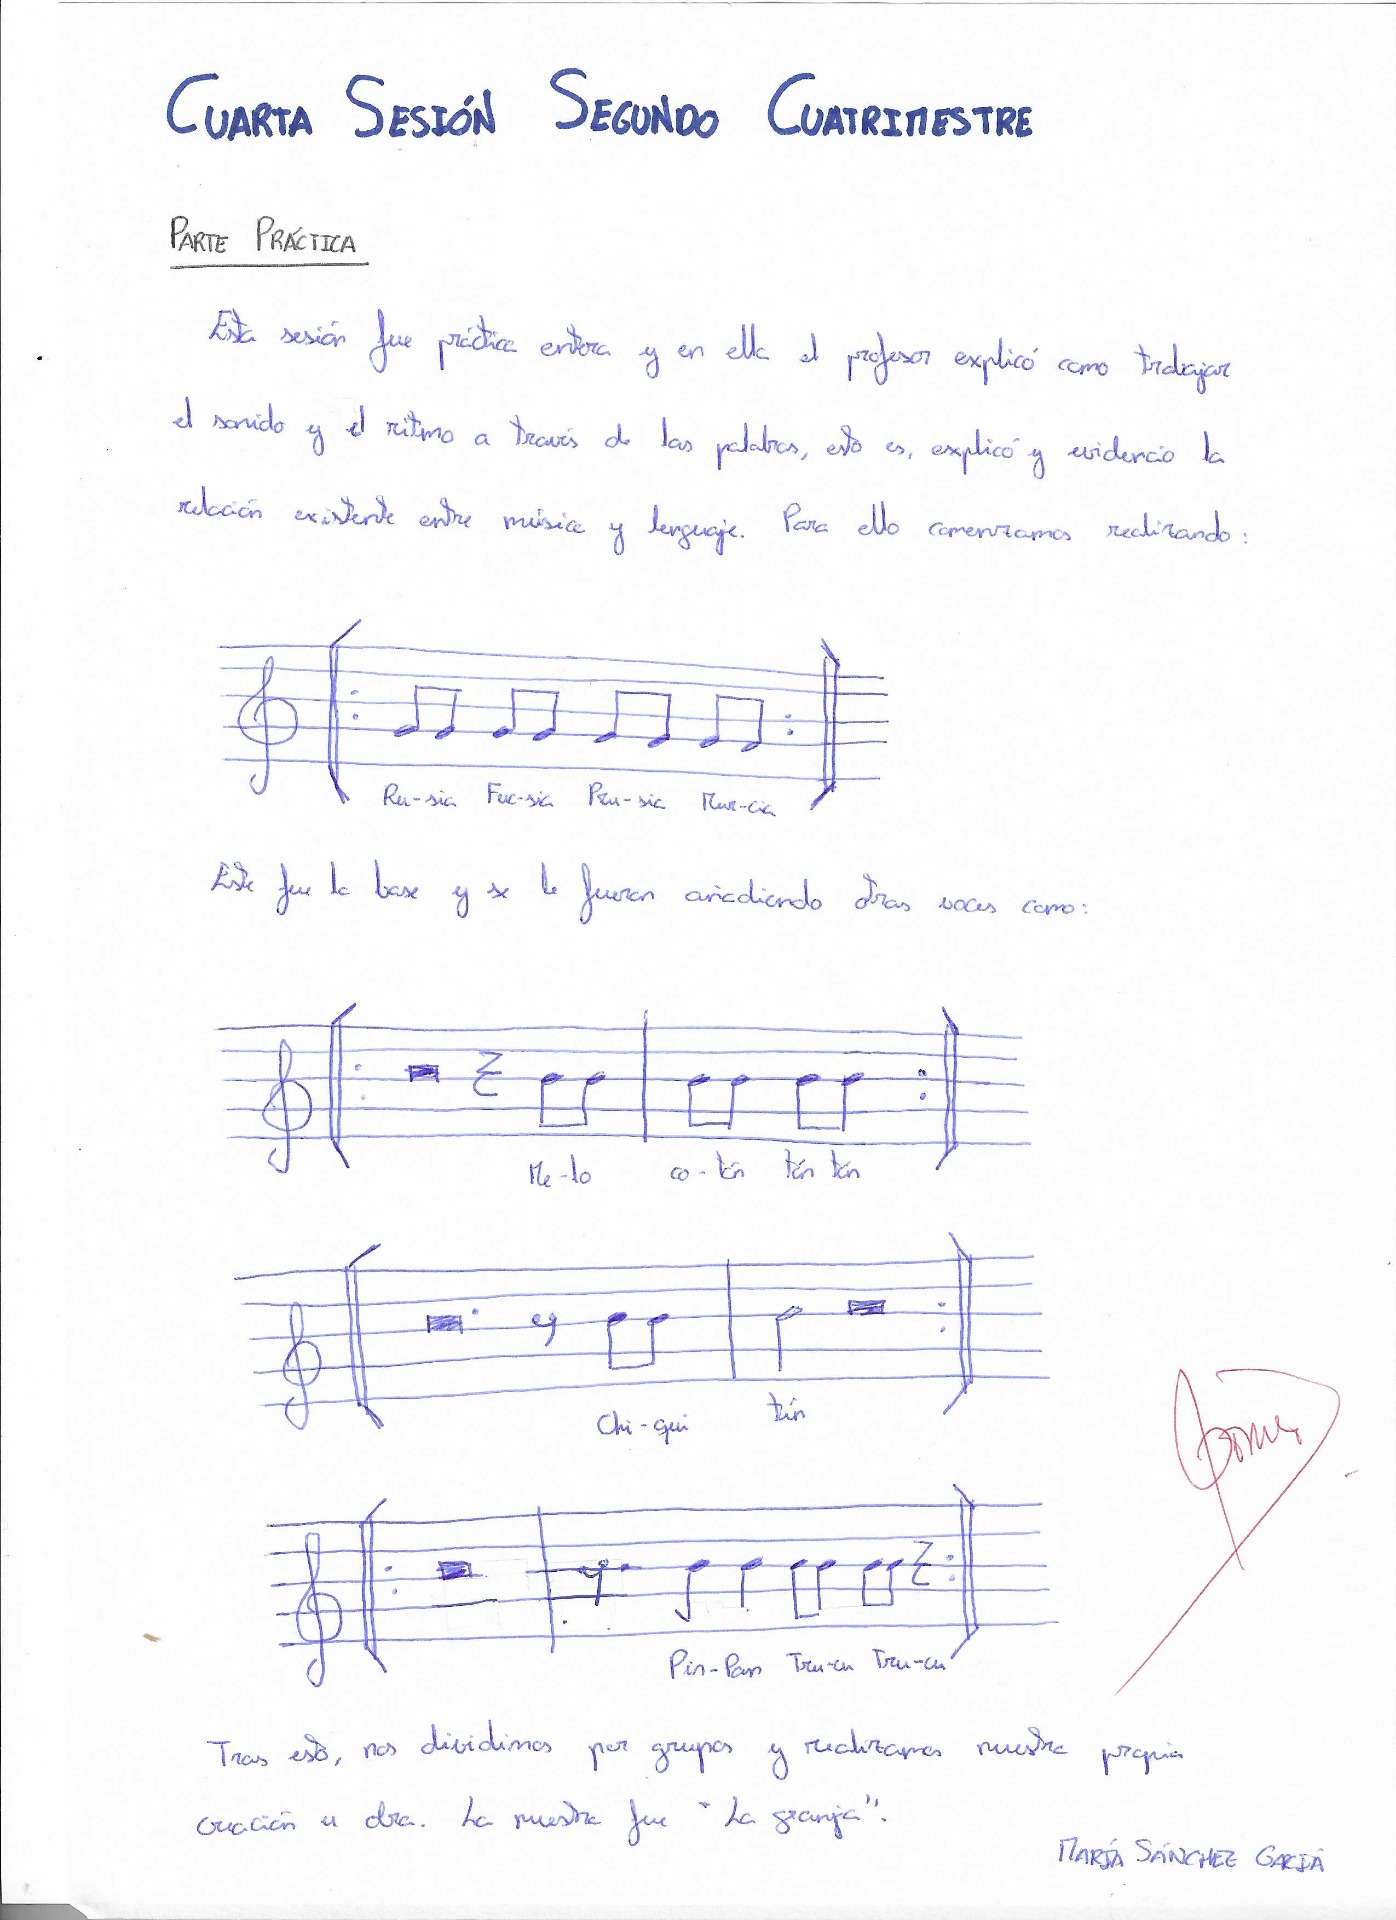 CUARTA SESIÓN SEGUNDO CUATRIMESTRE
PARTE PRÁCTICA
Esta sesión fue práctica entera y en ella el profesor explicó como trabajar
el sonido y el ritmo a través de las palabras, esto es, explicó y evidencio la
relación existente entre música y lenguaje. Para ello comenzamos realizando:
Ru-sia Fuc-sia Pru-sia Mur-cia
Este fue la base y se le fueron añadiendo otras voces como:
Me-lo co-tón tón tón
Chi-qui tín
Pin-Pan Tru-cu Tru-cu
Tras esto, nos dividimos por grupos y realizamos nuestra propia
creación u obra. La nuestra fue "La granja".
MARÍA SÁNCHEZ GARCÍA